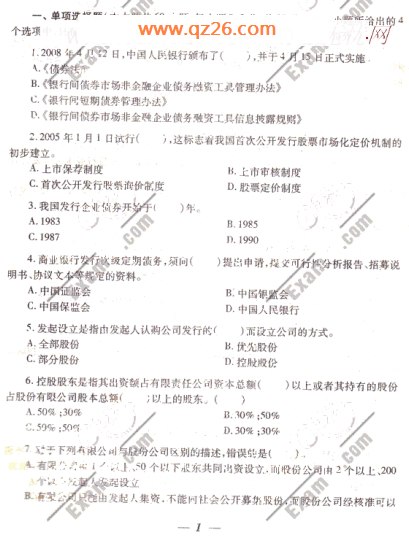 www.qz26.com
一、单项选择题
所给出的4
个选项
1. 2008年4月12日,中国人民银行颁布了( ),并于4月15日正式实施
A.《债券
B.《银行间债券市场非金融企业债务融资工具管理办法》
C.《银行间短期债券管理办法》
D.《银行间债券市场非金融企业债务融资工具信息披露规则》
2. 2005年1月1日试行( ),这标志着我国首次公开发行股票市场化定价机制的
初步建立。
A. 上市保荐制度 B. 上市审核制度
C. 首次公开发行股票询价制度 D. 股票定价制度
3. 我国发行企业债券开始于( )年。
A. 1983 B. 1985
C. 1987 D. 1990
4. 商业银行发行次级定期债务,须向( )提出申请,提交可行性分析报告、招募说
明书、协议文本等规定的资料。
A. 中国证监会 B. 中国银监会
C. 中国保监会 D. 中国人民银行
5. 发起设立是指由发起人认购公司发行的( )而设立公司的方式。
A. 全部股份 B. 优先股份
C. 部分股份 D. 控股股份
6. 控股股东是指其出资额占有限责任公司资本总额( )以上或者其持有的股份
占股份有限公司股本总额( )以上的股东。
A. 50%;30% B. 30%;50%
C. 50%;50% D. 30%;30%
7. 对于下列有限公司与股份公司区别的描述,错误的是( )。
A. 有限公司由1个以上、50个以下股东共同出资设立,而股份公司由2个以上、200
个以下发起人发起设立
B. 有限公司只能由发起人集资,不能向社会公开募集股份,而股份公司经核准可以
— 1 —
Exam.com
Exam.com
Exam.com
Exam.com